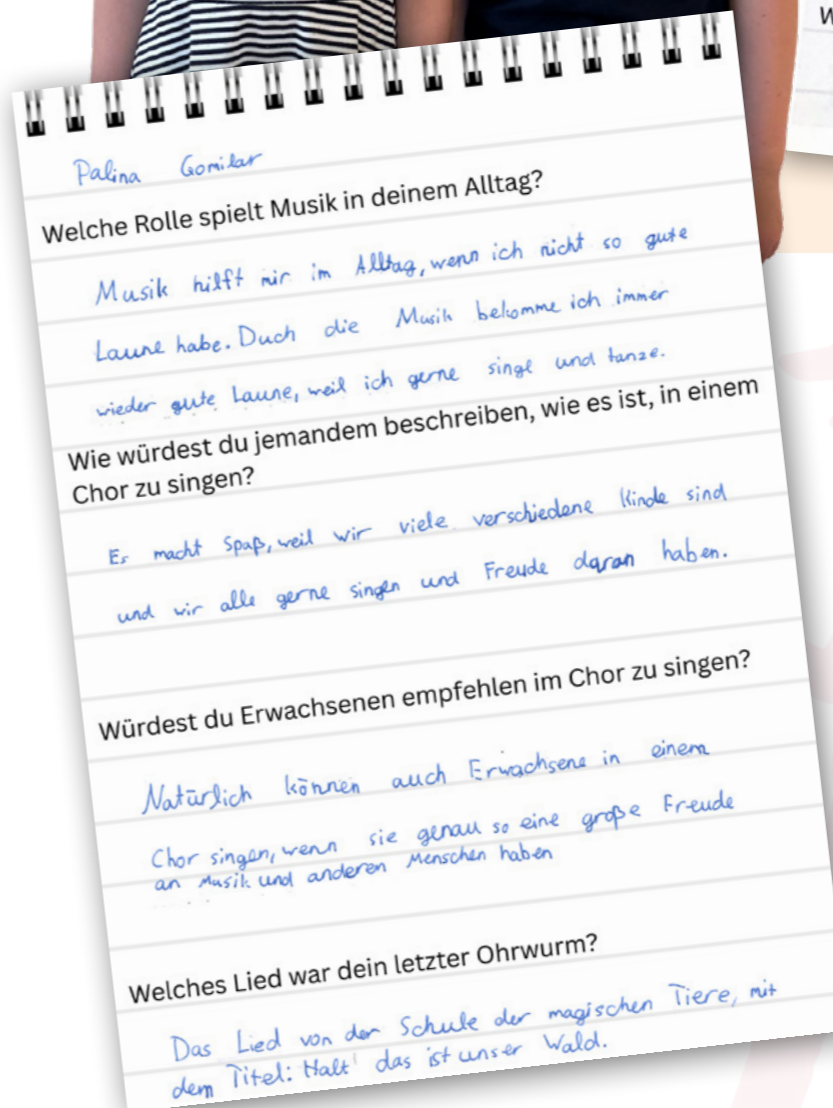 W
Palina Gomilar
Welche Rolle spielt Musik in deinem Alltag?
Musik hilft mir im Alltag, wenn ich nicht so gute
Laune habe. Duch die Musik bekomme ich immer
wieder gute Laune, weil ich gerne singe und tanze.
Wie würdest du jemandem beschreiben, wie es ist, in einem
Chor zu singen?
Es macht Spaß, weil wir viele verschiedene Kinde sind
und wir alle gerne singen und Freude daran haben.
Würdest du Erwachsenen empfehlen im Chor zu singen?
Natürlich können auch Erwachsene in einem
Chor singen, wenn sie genau so eine große Freude
an Musik und anderen Menschen haben
Welches Lied war dein letzter Ohrwurm?
Das Lied von der Schule der magischen Tiere, mit
dem Titel: Halt das ist unser Wald.